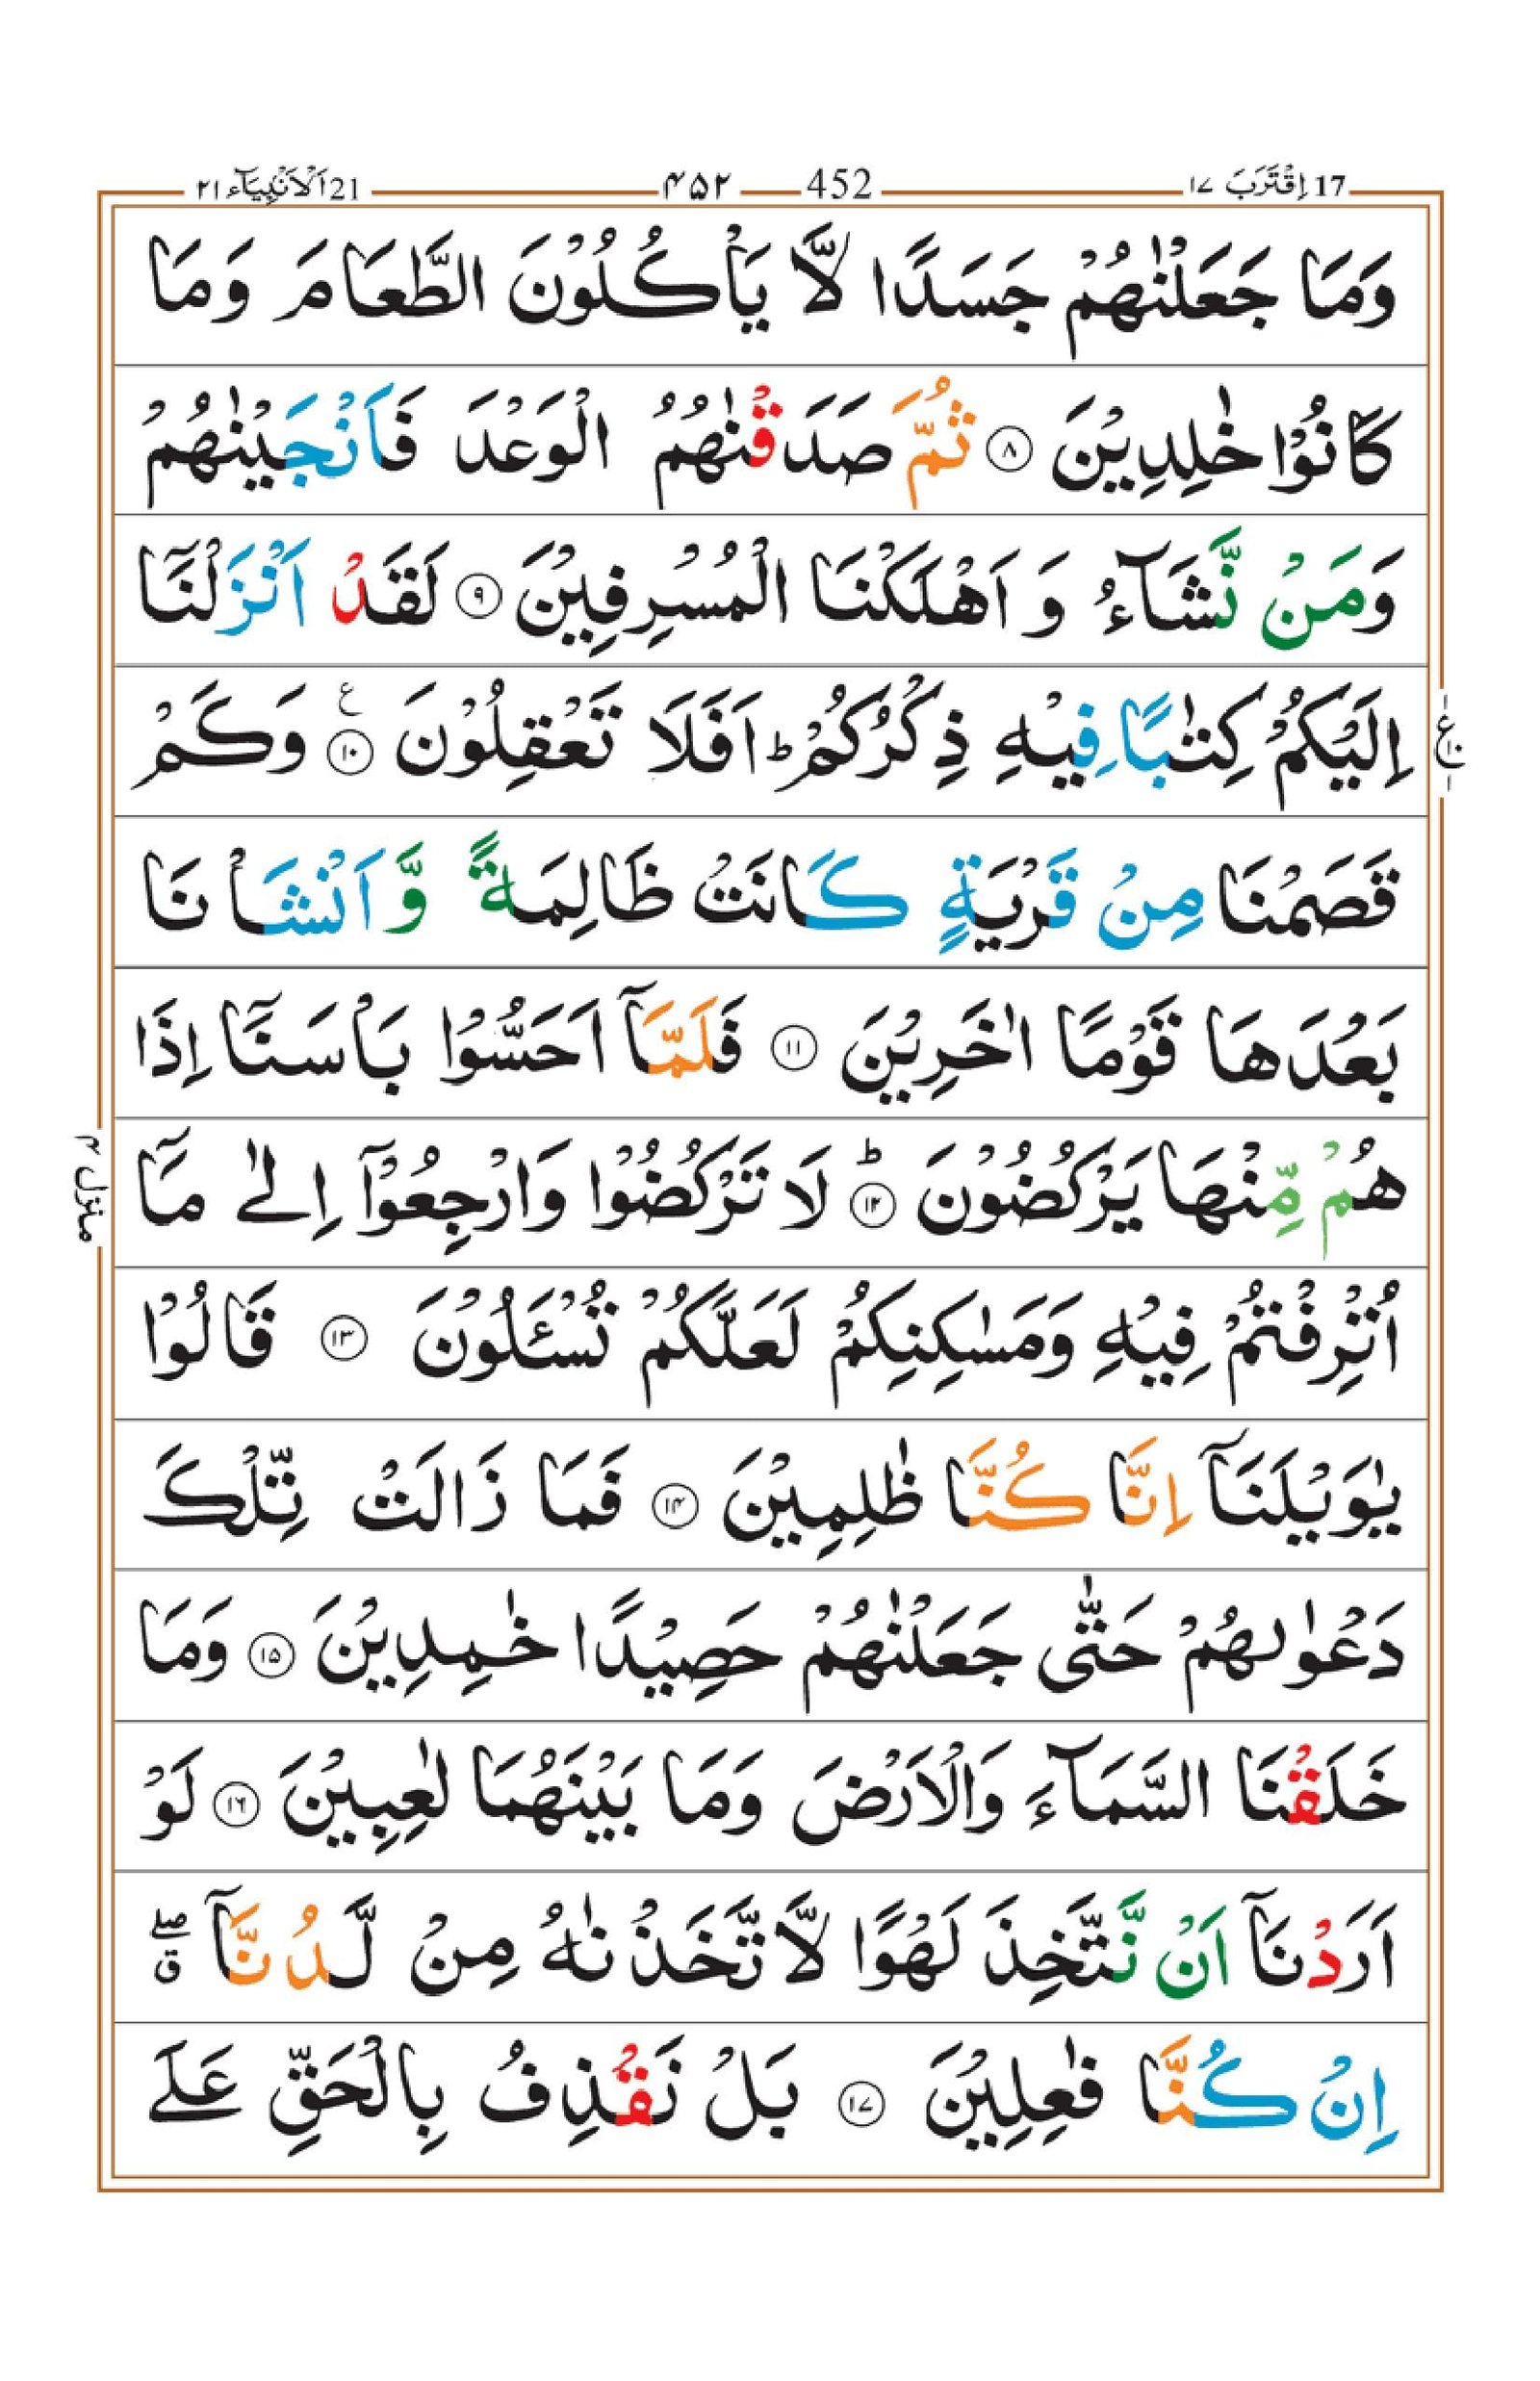 17 اِقْتَرَبَ ١٧ 452 ۴۵۲ 21 اَلْاَنْۢبِيَآء ٢١
وَمَا جَعَلْنٰهُمْ جَسَدًا لَّا يَاْكُلُوْنَ الطَّعَامَ وَمَا
كَانُوْا خٰلِدِيْنَ ۸ ثُمَّ صَدَقْنٰهُمُ الْوَعْدَ فَاَنْجَيْنٰهُمْ
وَمَنْ نَّشَآءُ وَ اَهْلَكْنَا الْمُسْرِفِيْنَ ۹ لَقَدْ اَنْزَلْنَآ
اِلَيْكُمْ كِتٰبًا فِيْهِ ذِكْرُكُمْ ؕ اَفَلَا تَعْقِلُوْنَ ۱۰ ع وَكَمْ
قَصَمْنَا مِنْ قَرْيَةٍ كَانَتْ ظَالِمَةً وَّ اَنْشَاْ نَا
بَعْدَهَا قَوْمًا اٰخَرِيْنَ ۱۱ فَلَمَّآ اَحَسُّوْا بَاْسَنَآ اِذَا
هُمْ مِّنْهَا يَرْكُضُوْنَ ؕ ۱۲ لَا تَرْكُضُوْا وَارْجِعُوْٓا اِلٰى مَآ
اُتْرِفْتُمْ فِيْهِ وَمَسٰكِنِكُمْ لَعَلَّكُمْ تُسْئَلُوْنَ ۱۳ قَالُوْا
يٰوَيْلَنَآ اِنَّا كُنَّا ظٰلِمِيْنَ ۱۴ فَمَا زَالَتْ تِّلْكَ
دَعْوٰىهُمْ حَتّٰى جَعَلْنٰهُمْ حَصِيْدًا خٰمِدِيْنَ ۱۵ وَمَا
خَلَقْنَا السَّمَآءَ وَالْاَرْضَ وَمَا بَيْنَهُمَا لٰعِبِيْنَ ۱۶ لَوْ
اَرَدْنَآ اَنْ نَّتَّخِذَ لَهْوًا لَّا تَّخَذْنٰهُ مِنْ لَّدُنَّآ ۖق
اِنْ كُنَّا فٰعِلِيْنَ ۱۷ بَلْ نَقْذِفُ بِالْحَقِّ عَلَى
منزل ۴